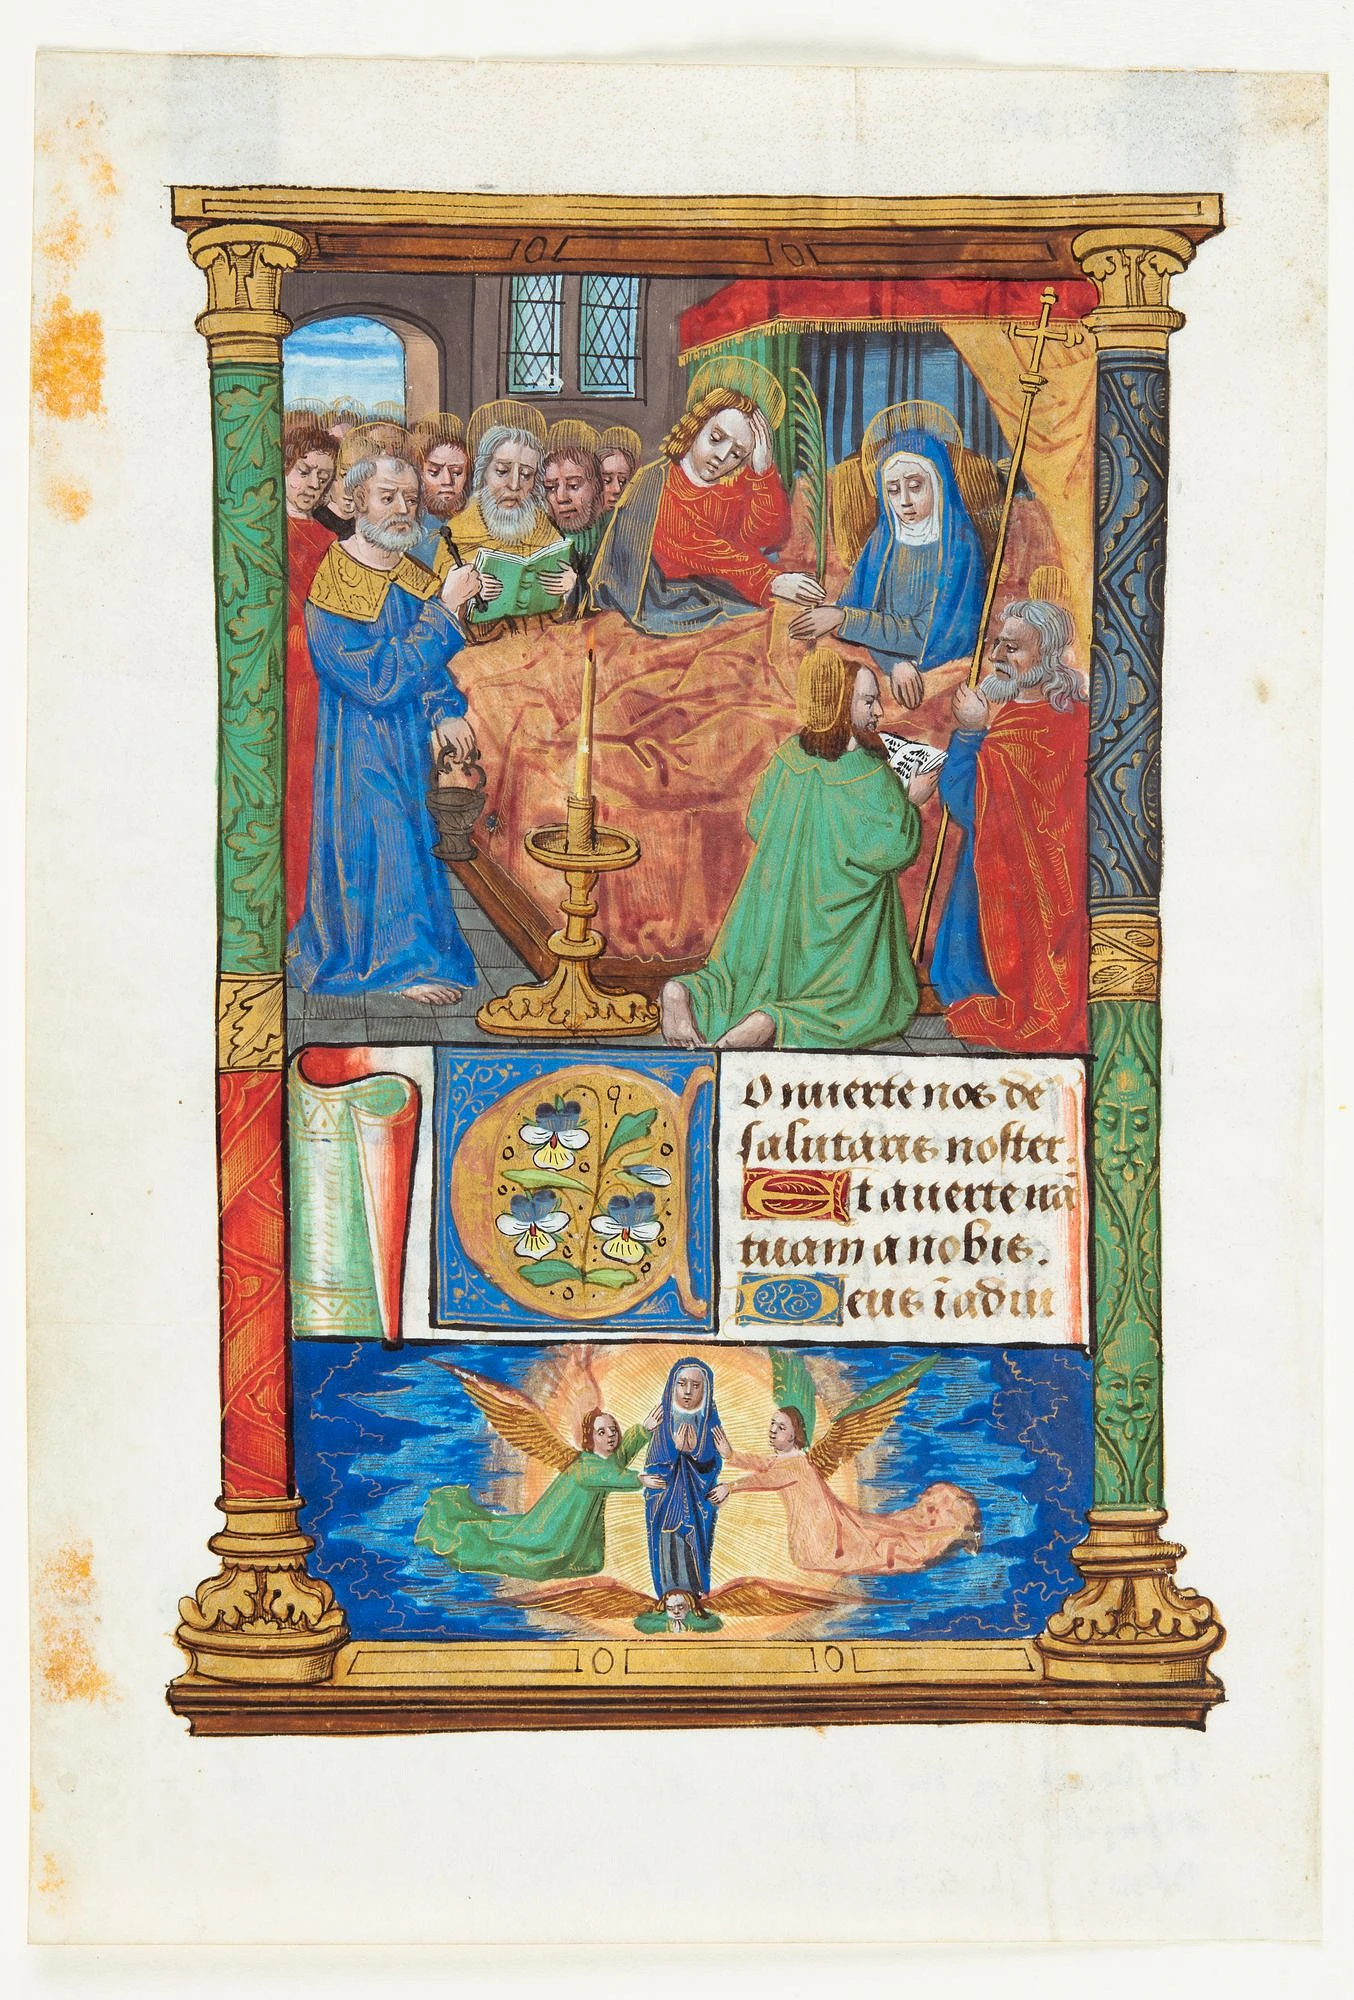 Onuerte nos de
salutaris noster.
Et auerte irā
tuam a nobis.
Deus ī adiu